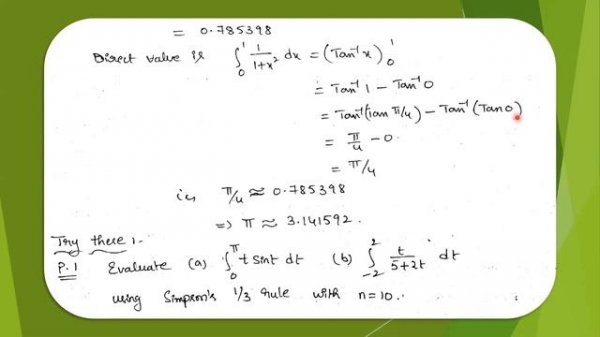 = 0.785398
Direct value is ∫₀¹ 1/(1+x²) dx = (Tan⁻¹x)₀¹
= Tan⁻¹ 1 − Tan⁻¹ 0
= Tan⁻¹(Tan π/4) − Tan⁻¹(Tan 0)
= π/4 − 0
= π/4
i.e., π/4 ≈ 0.785398
⇒ π ≈ 3.141592.
Try these :-
P.1 Evaluate (a) ∫₀^π t sint dt (b) ∫₋₂² t/(5+2t) dt
using Simpson's 1/3 rule with n=10.